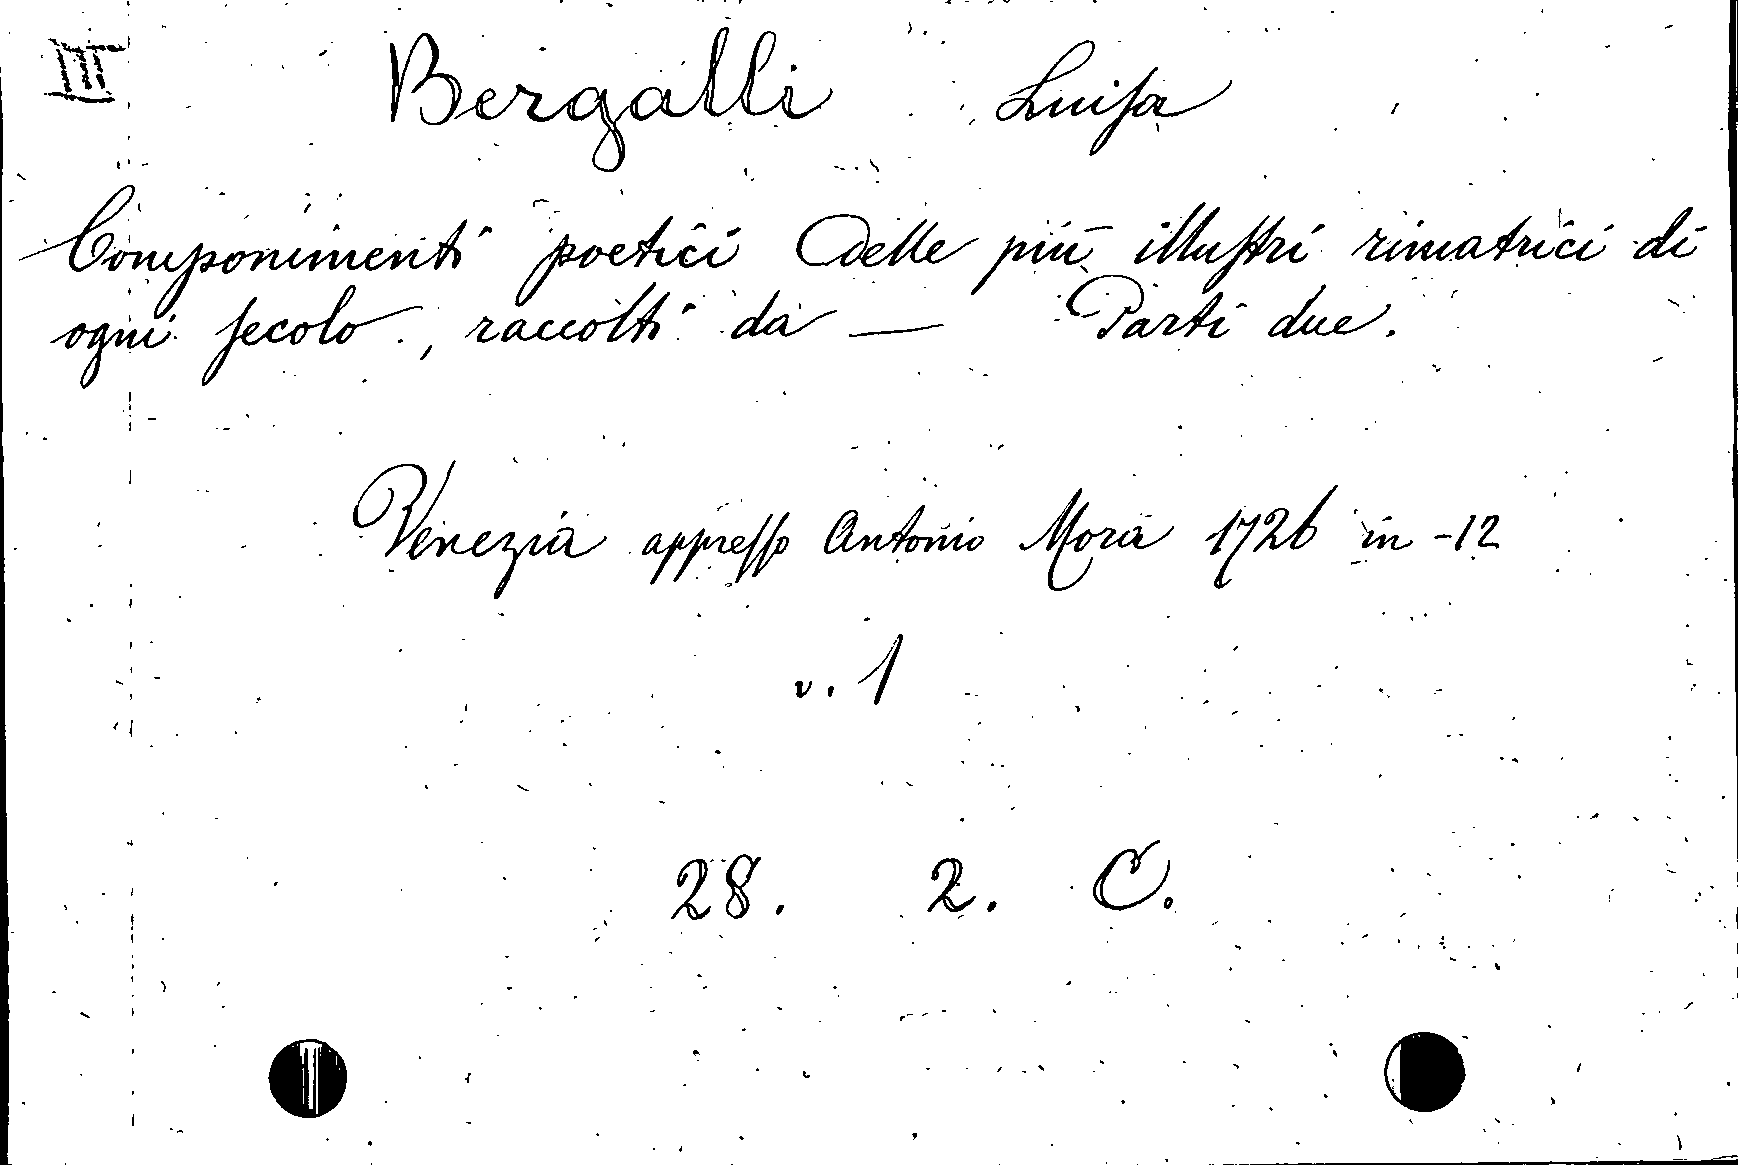 III
Bergalli Luiſa
Componimenti poetici delle più illuſtri rimatrici di
ogni ſecolo, raccolti da — Parti due.
Venezia appreſſo Antonio Mora 1726 in-12
v. 1
28. 2. C.